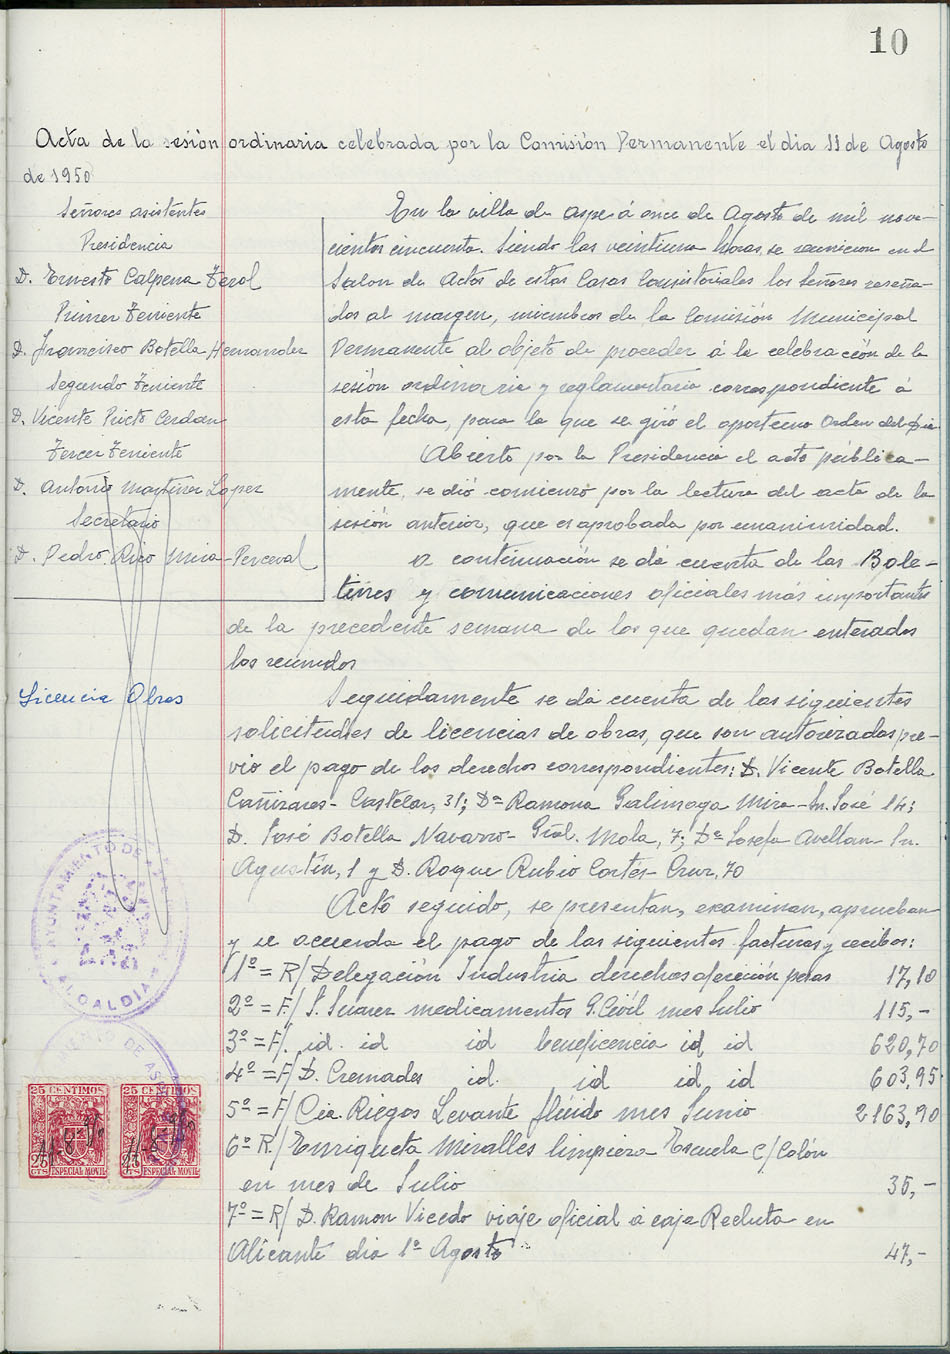 10
Acta de la sesión ordinaria celebrada por la Comisión Permanente el dia 11 de Agosto
de 1950
Señores asistentes
Presidencia
D. Ernesto Calpena Ferol
Primer Teniente
D. Francisco Botella Hernandez
Segundo Teniente
D. Vicente Prieto Cerdan
Tercer Teniente
D. Antonio Martinez Lopez
Secretario
D. Pedro Rico Mira-Perceval
En la villa de Aspe á once de Agosto de mil nove-
cientos cincuenta. Siendo las veintiuna horas, se reunieron en el
Salon de Actos de estas Casas Consistoriales los Señores reseña-
dos al margen, miembros de la Comisión Municipal
Permanente al objeto de proceder á la celebración de la
sesión ordinaria y reglamentaria correspondiente á
esta fecha, para la que se giró el oportuno Orden del Dia
Abierto por la Presidencia el acto pública-
mente, se dió comienzo por la lectura del acta de la
sesión anterior, que es aprobada por unanimidad.
A continuación se dá cuenta de las Bole-
tines y comunicaciones oficiales más importantes
de la precedente semana de los que quedan enterados
los reunidos
Licencia Obras
Seguidamente se dá cuenta de las siguientes
solicitudes de licencias de obras, que son autorizadas pre-
vio el pago de los derechos correspondientes: D. Vicente Botella
Cañizares- Castelar, 31; Dª Ramona Galinaga Mira-Sn. José 14;
D. José Botella Navarro- Gral. Mola, 7; Dª Josefa Avellan Sn.
Agustín, 1 y D. Roque Rubio Cortés- Cruz, 70
Acto seguido, se presentan, examinan, aprueban
y se acuerda el pago de las siguientes facturas y recibos:
1º = R/ Delegación Industria derechos afección pesas 17,10
2º = F/ S. Suarez medicamentos G. Civil mes Julio 115,-
3º = F/. id. id id beneficencia id id 620,70
4º = F/ D. Cremades id. id id, id 603,95
5º = F/ Cia. Riegos Levante flúido mes Junio 2163,90
6º R./ Enriqueta Miralles limpieza Escuela C/ Colón
en mes de Julio 35,-
7º = R/ D. Ramon Vicedo viaje oficial á caja Recluta en
Alicante dia 1º Agosto 47,-
AYUNTAMIENTO DE
ALCALDIA
25 CENTIMOS
25 CENTIMOS
25 CTS ESPECIAL MOVIL
25 CTS ESPECIAL MOVIL